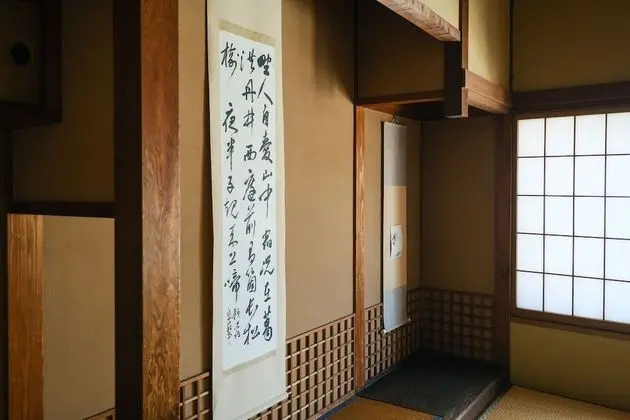 野人自愛山中宿況在葛
洪丹井西庭前有箇長松
樹夜半子規来上啼